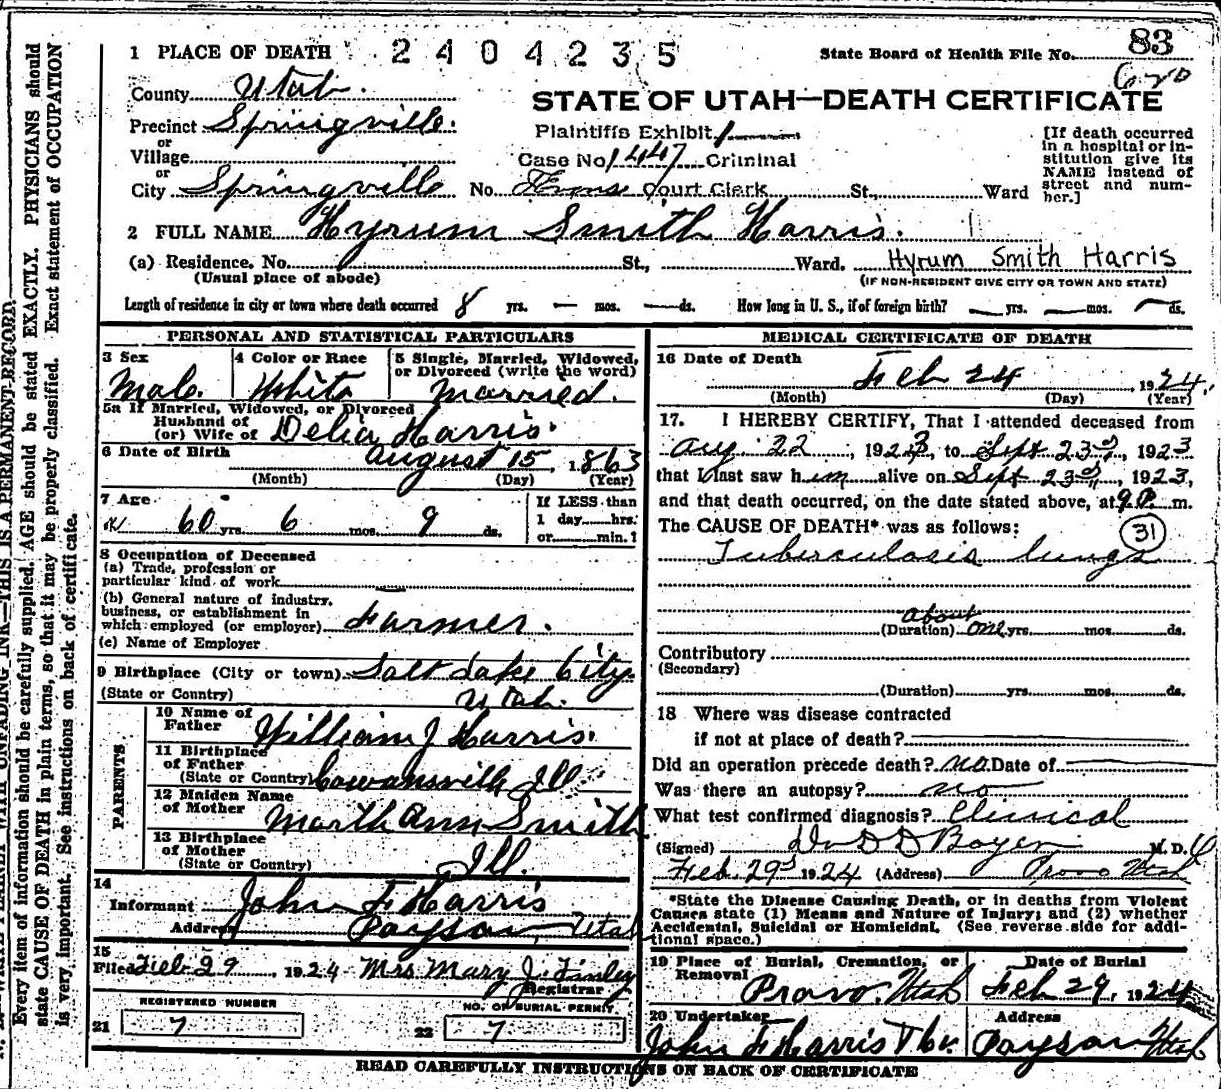 1 PLACE OF DEATH 2404235 State Board of Health File No. 83
County Utah.
STATE OF UTAH—DEATH CERTIFICATE
Precinct Springville.
or
Village
or
City Springville No. St., Ward
Plaintiffs Exhibit 1
Case No 1447 Criminal
Court Clerk
[If death occurred
in a hospital or in-
stitution give its
NAME instead of
street and num-
ber.]
2 FULL NAME Hyrum Smith Harris.
(a) Residence. No. St., Ward. Hyrum Smith Harris
(Usual place of abode) (IF NON-RESIDENT GIVE CITY OR TOWN AND STATE)
Length of residence in city or town where death occurred 8 yrs. — mos. — ds. How long in U. S., if of foreign birth? — yrs. — mos. — ds.
PERSONAL AND STATISTICAL PARTICULARS
3 Sex
Male.
4 Color or Race
White
5 Single, Married, Widowed,
or Divorced (write the word)
Married.
5a If Married, Widowed, or Divorced
Husband of
(or) Wife of Delia Harris.
6 Date of Birth August 15, 1863
(Month) (Day) (Year)
7 Age
60 yrs. 6 mos. 9 ds.
If LESS than
1 day......hrs.
or......min.?
8 Occupation of Deceased
(a) Trade, profession or
particular kind of work
(b) General nature of industry,
business, or establishment in
which employed (or employer) Farmer.
(c) Name of Employer
9 Birthplace (City or town) Salt Lake City.
(State or Country) Utah.
PARENTS
10 Name of
Father William J Harris.
11 Birthplace
of Father
(State or Country) Cowansville Ill
12 Maiden Name
of Mother Marth Ann Smith
13 Birthplace
of Mother
(State or Country) Ill.
14
Informant John F Harris
Address Payson, Utah
15
Filed Feb 29, 1924 Mrs Mary J. Finley
Registrar
REGISTERED NUMBER
21 7
NO. OF BURIAL PERMIT
22 7
MEDICAL CERTIFICATE OF DEATH
16 Date of Death
Feb 24, 1924.
(Month) (Day) (Year)
17. I HEREBY CERTIFY, That I attended deceased from
Aug. 22, 1923, to Sept. 23rd, 1923
that I last saw him alive on Sept 23rd, 1923,
and that death occurred, on the date stated above, at 9 P. m.
The CAUSE OF DEATH* was as follows: 31
Tuberculosis lungs
about
(Duration) one yrs. mos. ds.
Contributory
(Secondary)
(Duration) yrs. mos. ds.
18 Where was disease contracted
if not at place of death?
Did an operation precede death? no Date of
Was there an autopsy? no
What test confirmed diagnosis? Clinical
(Signed) Dr D D Boyer M. D.
Feb. 29, 1924 (Address) Provo Utah
*State the Disease Causing Death, or in deaths from Violent
Causes state (1) Means and Nature of Injury; and (2) whether
Accidental, Suicidal or Homicidal. (See reverse side for addi-
tional space.)
19 Place of Burial, Cremation, or
Removal
Provo. Utah
Date of Burial
Feb 29, 1924
20 Undertaker
John F Harris
Address
Payson Utah
READ CAREFULLY INSTRUCTIONS ON BACK OF CERTIFICATE
Every item of information should be carefully supplied. AGE should be stated EXACTLY. PHYSICIANS should
state CAUSE OF DEATH in plain terms, so that it may be properly classified. Exact statement of OCCUPATION
is very important. See instructions on back of certificate.